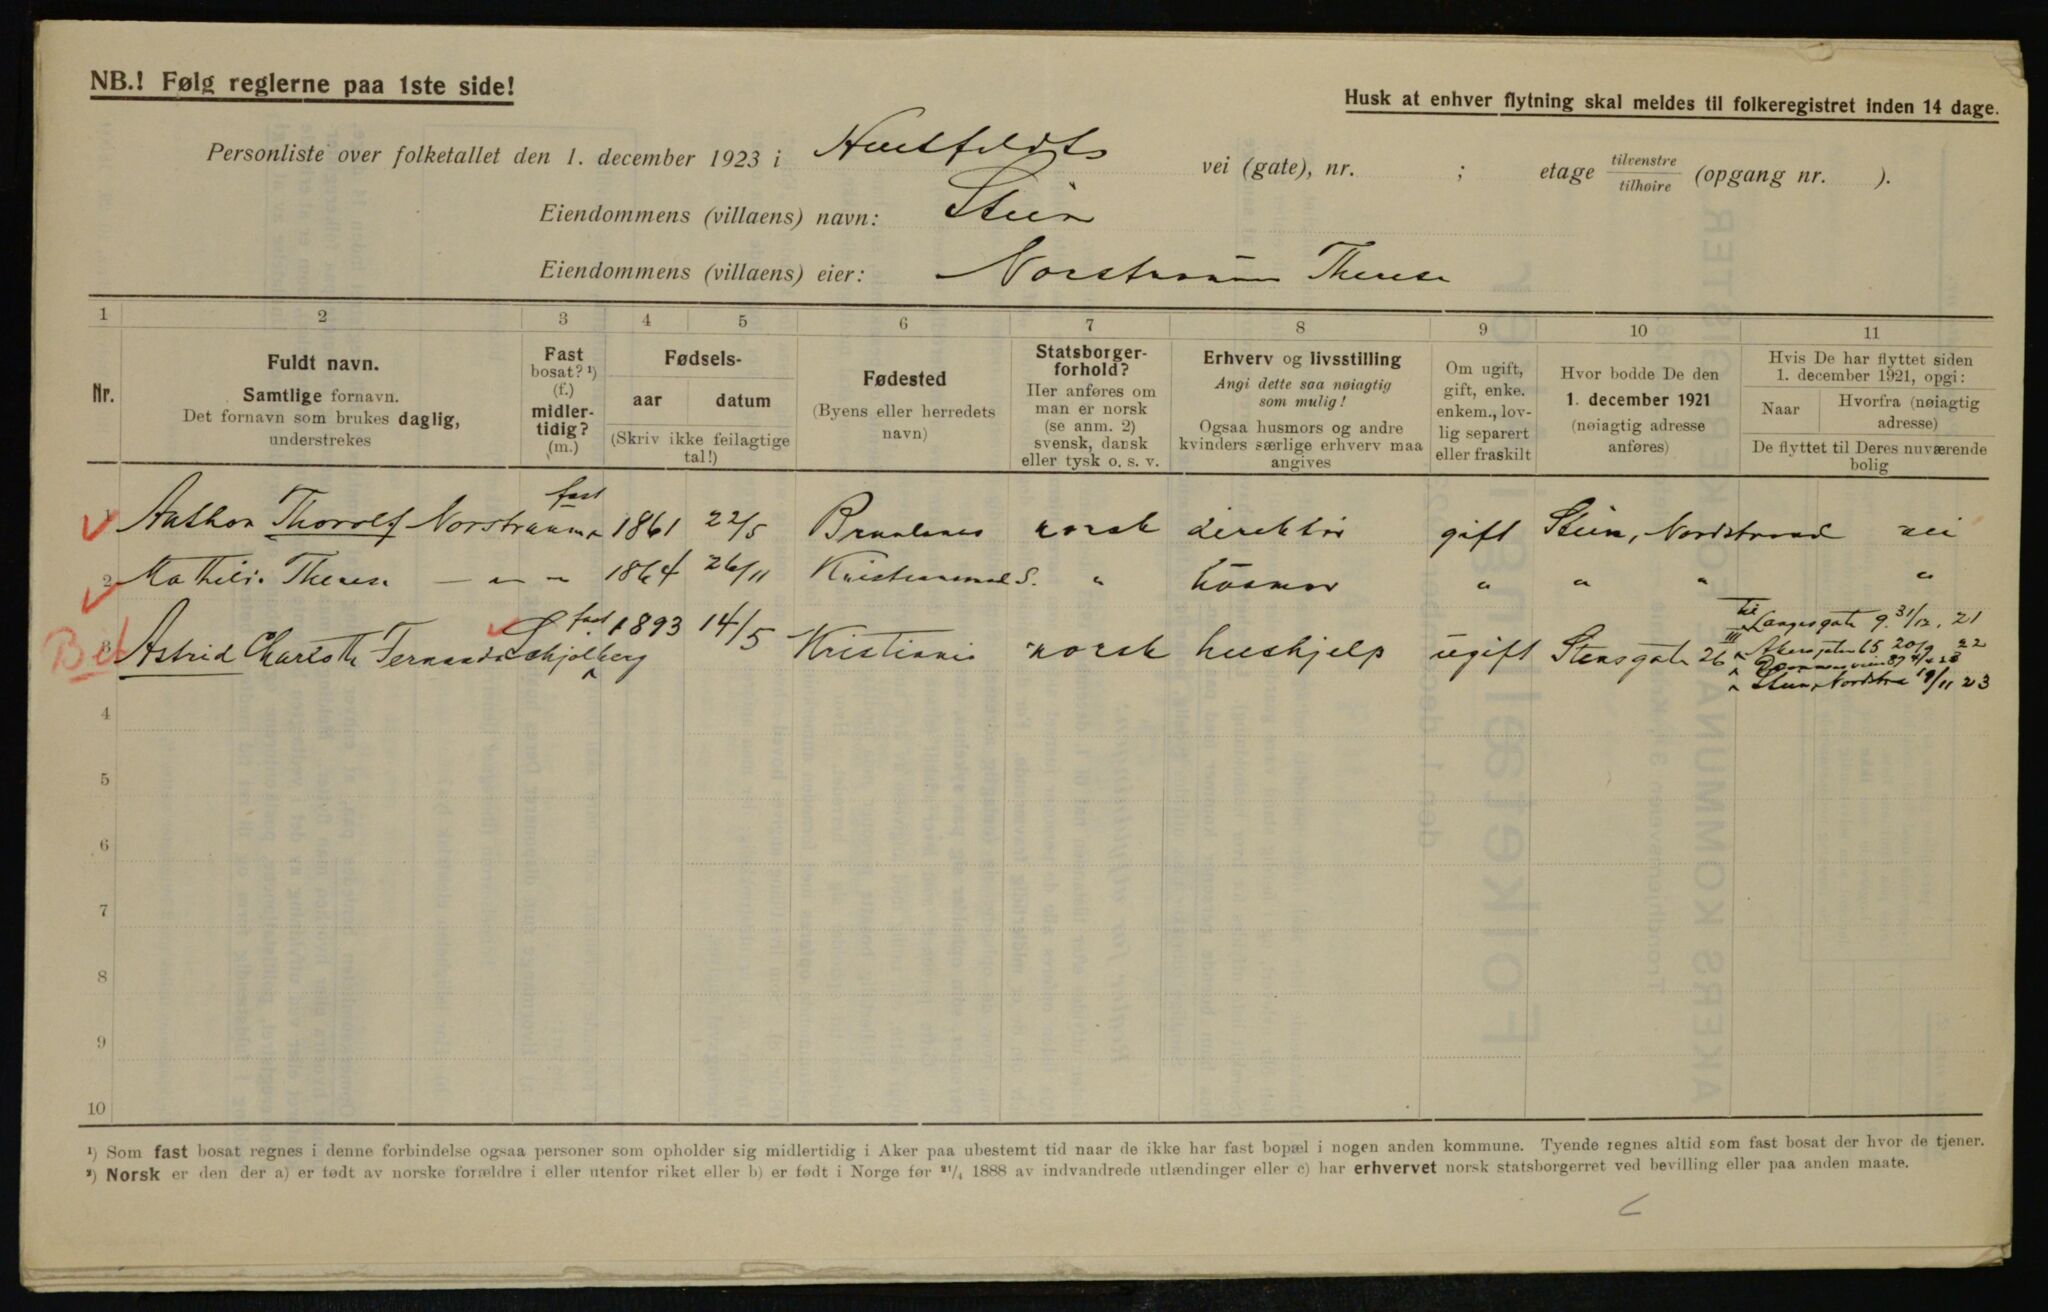 NB.! Følg reglerne paa 1ste side!
Husk at enhver flytning skal meldes til folkeregistret inden 14 dage.
Personliste over folketallet den 1. december 1923 i Huitfeldts vei (gate), nr. ; etage tilvenstre tilhøire (opgang nr. ).
Eiendommens (villaens) navn: Stien
Eiendommens (villaens) eier: Norstrøm Therese
1 2 3 4 5 6 7 8 9 10 11
Nr.
Fuldt navn.
Samtlige fornavn.
Det fornavn som brukes daglig,
understrekes
Fast
bosat? ¹)
(f.)
midler-
tidig?
(m.)
Fødsels-
aar datum
(Skriv ikke feilagtige
tal!)
Fødested
(Byens eller herredets
navn)
Statsborger-
forhold?
Her anføres om
man er norsk
(se anm. 2)
svensk, dansk
eller tysk o. s. v.
Erhverv og livsstilling
Angi dette saa nøiagtig
som mulig!
Ogsaa husmors og andre
kvinders særlige erhverv maa
angives
Om ugift,
gift, enke.
enkem., lov-
lig separert
eller fraskilt
Hvor bodde De den
1. december 1921
(nøiagtig adresse
anføres)
Hvis De har flyttet siden
1. december 1921, opgi:
Naar
Hvorfra (nøiagtig
adresse)
De flyttet til Deres nuværende
bolig
1 Anthon Thorolf fast 1861 22/5 Brunlanes norsk direktør gift Stien, Nordstrand nei
2 Therese — " — 1864 26/11 Kristiansand S. " husmor " " " "
Bet
3 Astrid Charlotte Fernanda Skjolberg fast 1893 14/5 Kristiania norsk hushjelp ugift Stensgate 26 III
til Langesgate 9. 31/12. 21
Akersgaten 65 20/9 22
Stien, Nordstra 19/11 23
4
5
6
7
8
9
10
¹) Som fast bosat regnes i denne forbindelse ogsaa personer som opholder sig midlertidig i Aker paa ubestemt tid naar de ikke har fast bopæl i nogen anden kommune. Tyende regnes altid som fast bosat der hvor de tjener.
²) Norsk er den der a) er født av norske forældre i eller utenfor riket eller b) er født i Norge før 21/4 1888 av indvandrede utlændinger eller c) har erhvervet norsk statsborgerret ved bevilling eller paa anden maate.